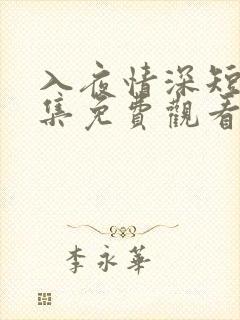 入夜情深短
集免費觀看
李永華